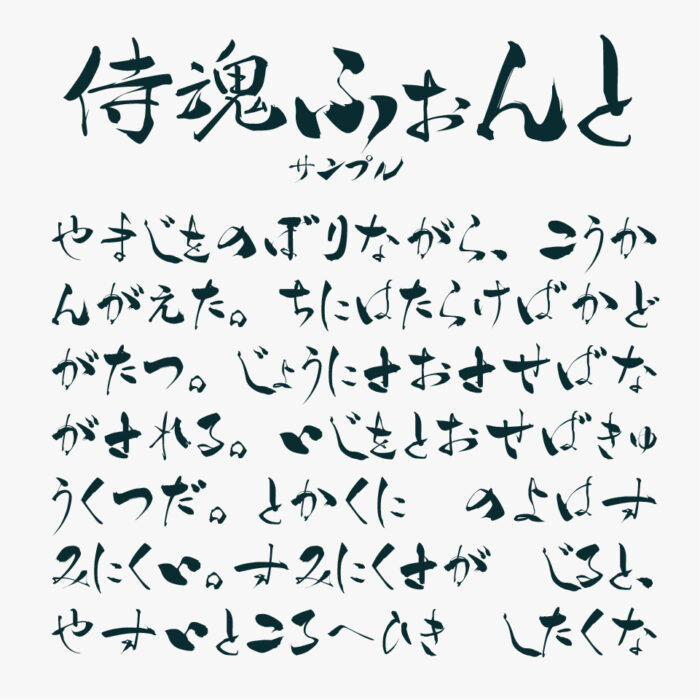 侍魂ふぉんと
サンプル
やまじをのぼりながら、 こうか
んがえた。 ちにはたらけばかど
がたつ。じょうにさおさせばな
がされる。 いじをとおせばきゅ
うくつだ。とかくに　のよはす
みにくい。すみにくさが　じると、
やすいところへひき　したくな